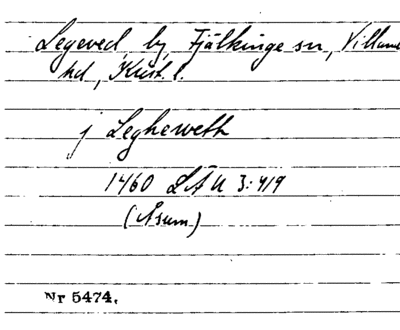 Legeved, by, Fjälkinge sn, Villand
hd, Krist. l.
j Legheweth
1460 LÄU 3:419
(Åsum)
Nr 5474.